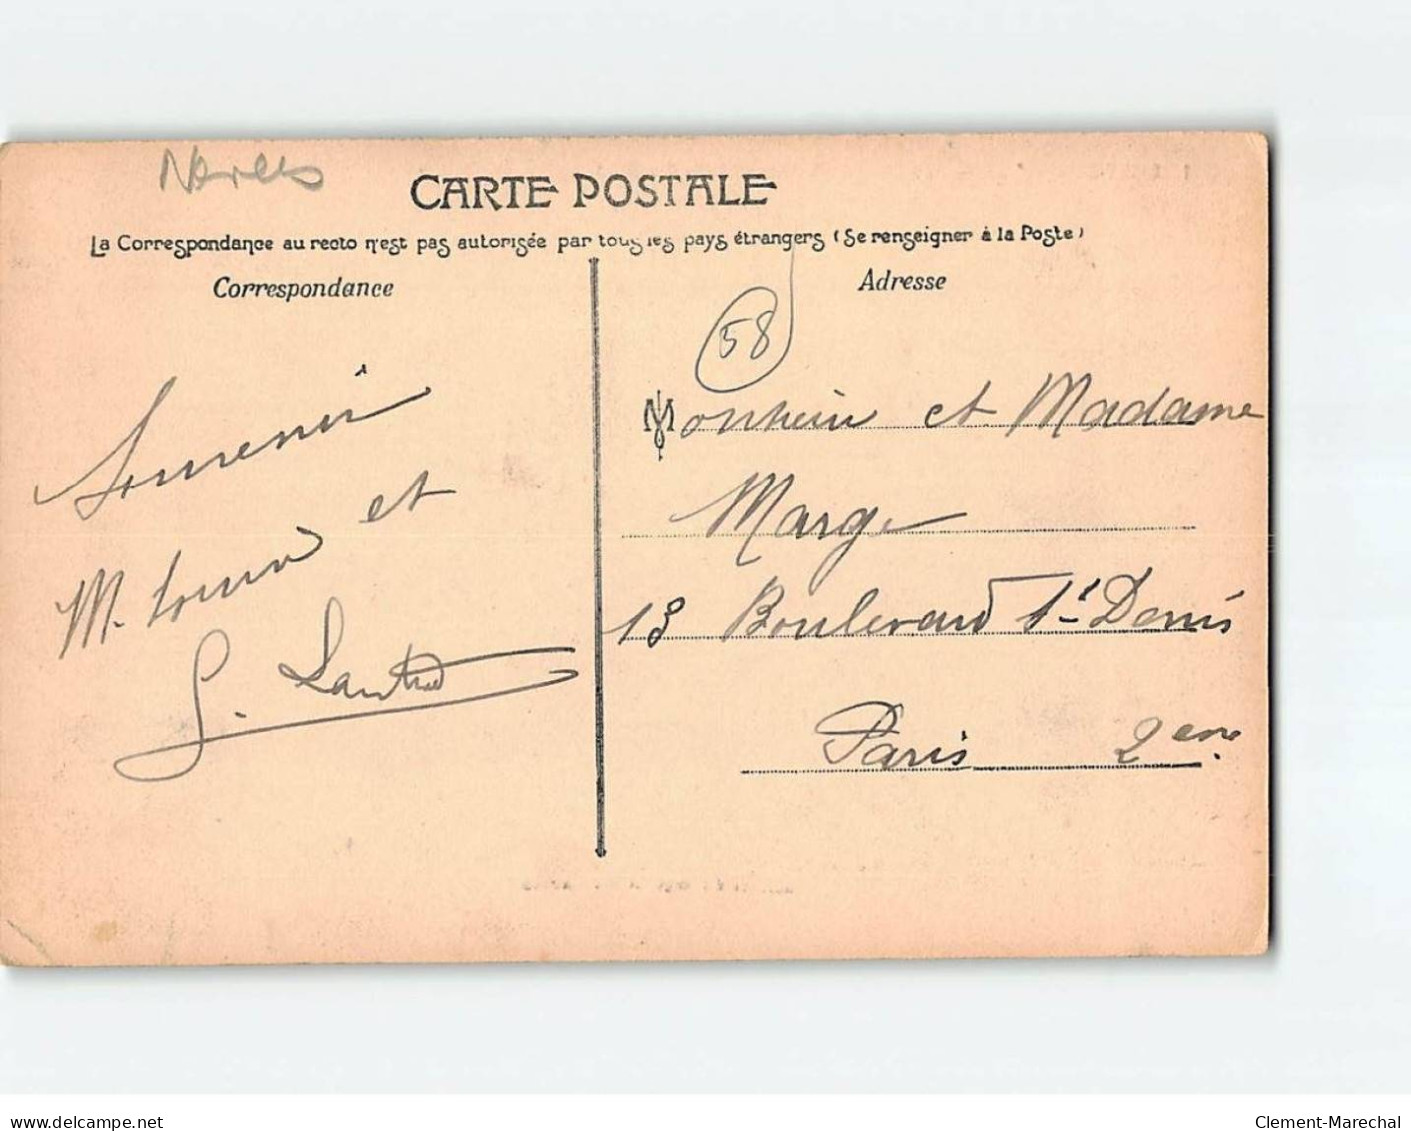 Nevers
CARTE POSTALE
La Correspondance au recto n'est pas autorisée par tous les pays étrangers (Se renseigner à la Poste)
Correspondance
Adresse
58
Souvenir
M. et
G.
Monsieur et Madame
Marge
13 Boulevard St Denis
Paris 2eme.
www.delcampe.net
Clement-Marechal